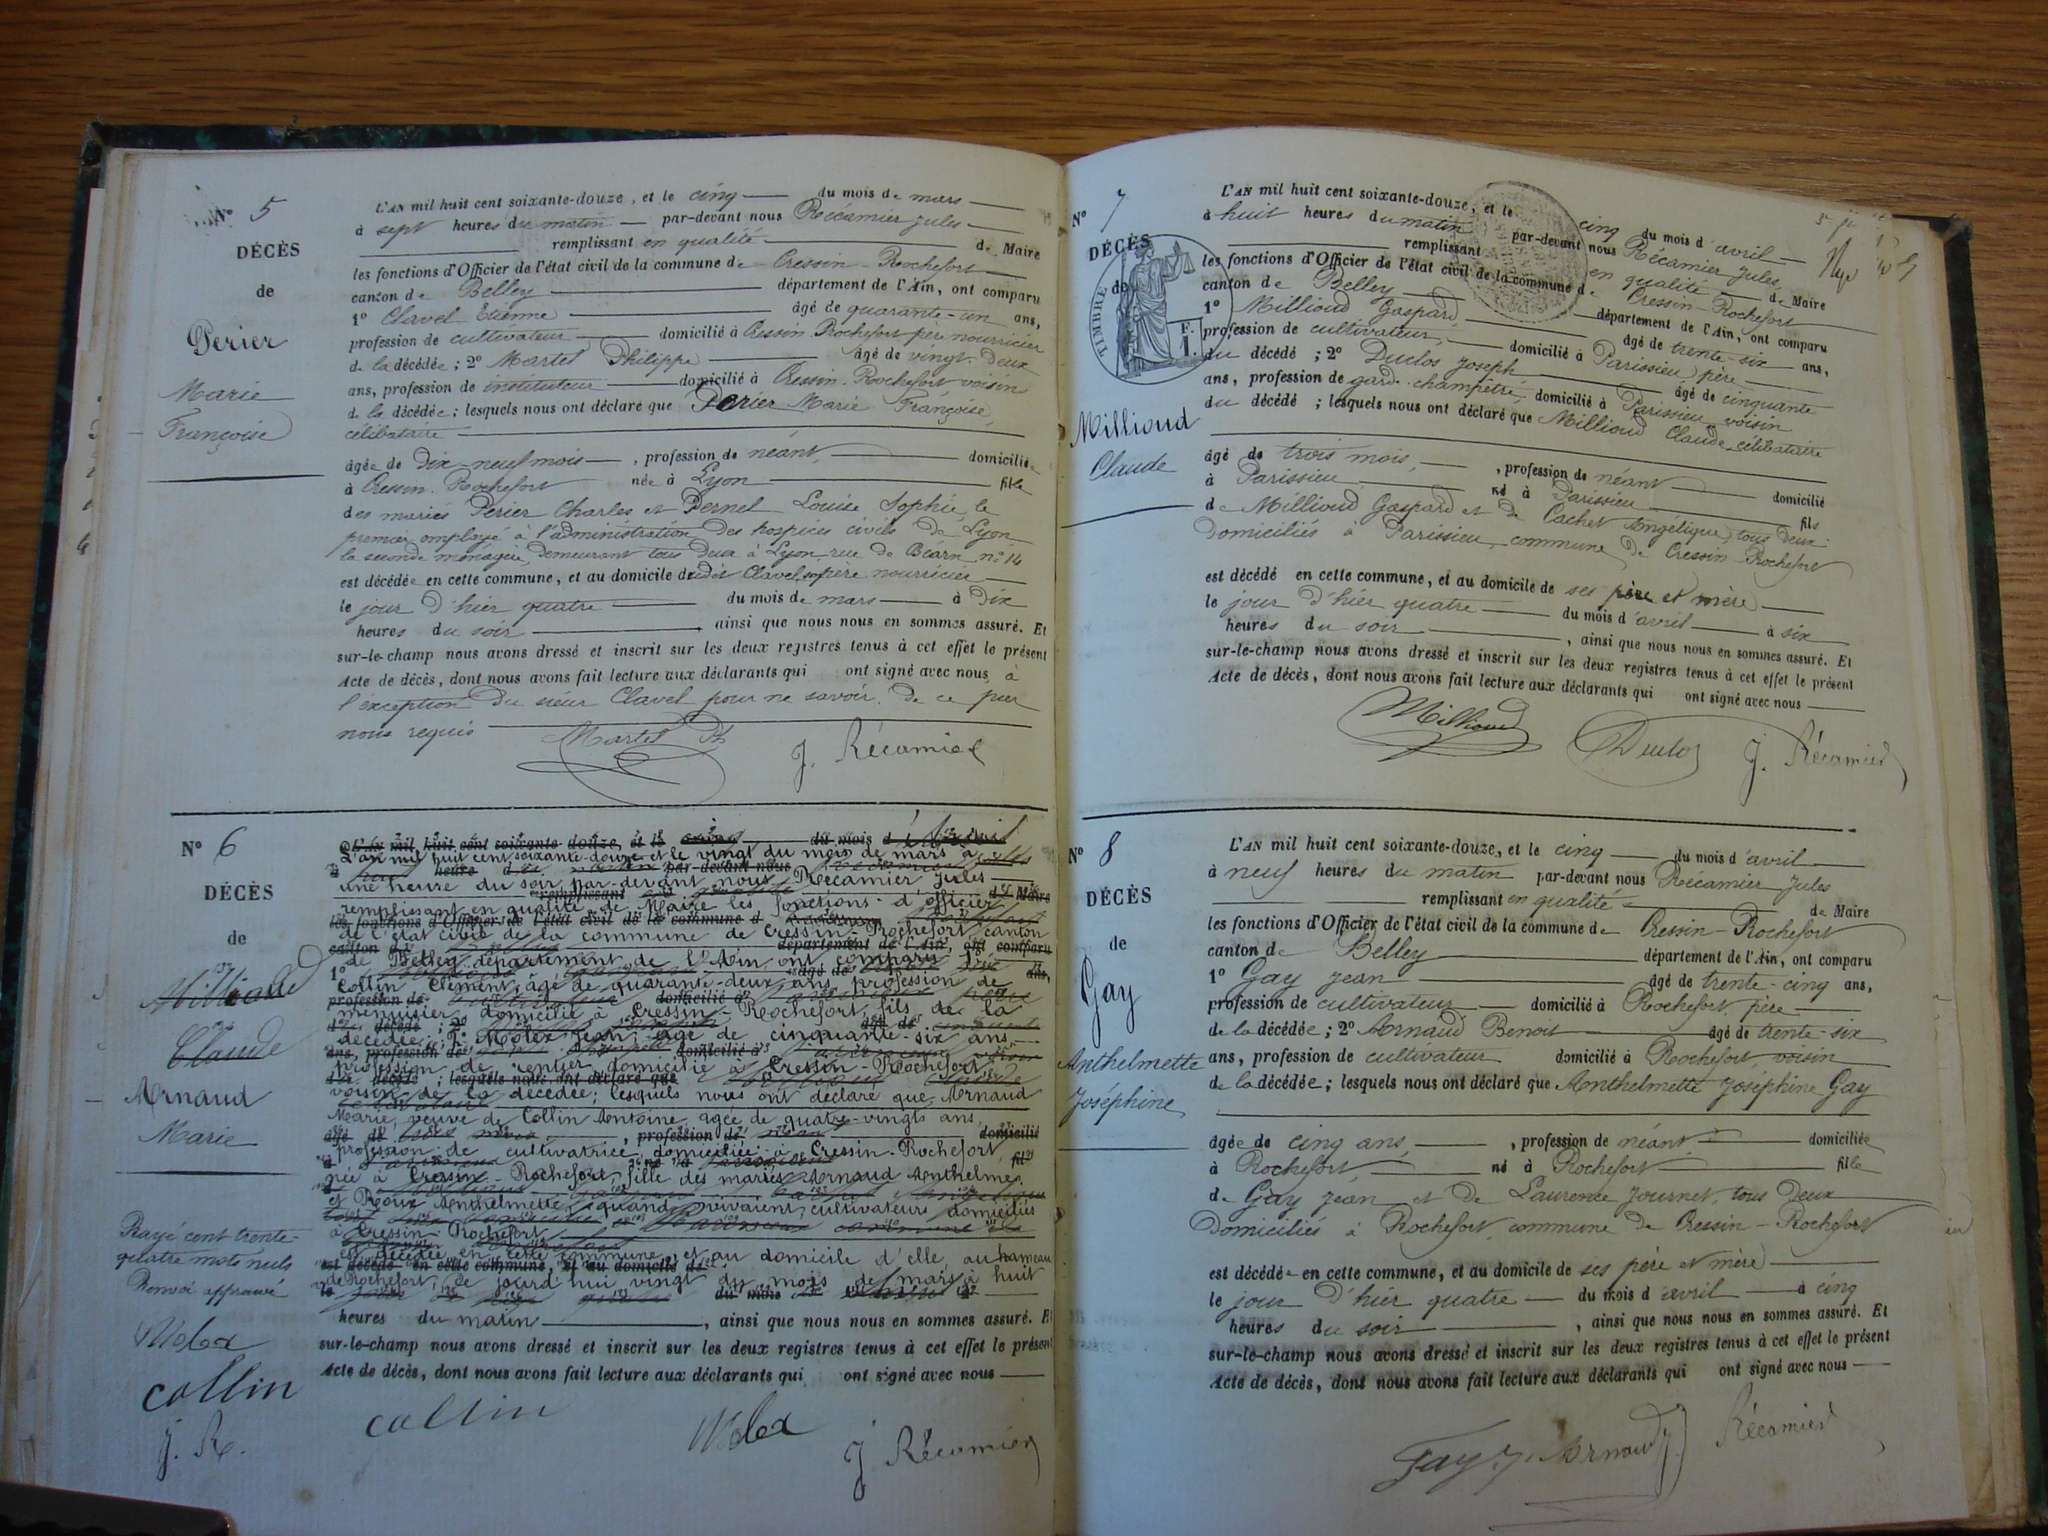 N° 5
DÉCÈS
de
Perier
Marie
Françoise
L'AN mil huit cent soixante-douze, et le cinq du mois de mars
à sept heures du matin par-devant nous Récamier Jules
remplissant en qualité de Maire
les fonctions d'Officier de l'état civil de la commune de Cressin-Rochefort
canton de Belley département de l'Ain, ont comparu
1° Clavel Etienne âgé de quarante-un ans,
profession de cultivateur domicilié à Cressin Rochefort père nourricier
de la décédée ; 2° Martel Philippe âgé de vingt-deux
ans, profession de instituteur domicilié à Cressin-Rochefort voisin
de la décédée ; lesquels nous ont déclaré que Perier Marie Françoise,
célibataire
âgée de Dix-neuf mois, profession de néant, domiciliée
à Cressin-Rochefort née à Lyon fille
des mariés Perier Charles et Pernel Louise Sophie, le
premier employé à l'administration des hospices civils de Lyon
la seconde ménagère, demeurant tous deux à Lyon rue de Béarn n° 14
est décédée en cette commune, et au domicile dudit Clavel, son père nourricier
le jour d'hier quatre du mois de mars à Dix
heures du soir, ainsi que nous nous en sommes assuré. Et
sur-le-champ nous avons dressé et inscrit sur les deux registres tenus à cet effet le présent
Acte de décès, dont nous avons fait lecture aux déclarants qui ont signé avec nous, à
l'exception du sieur Clavel pour ne savoir, de ce par
nous requis
Martel Ph
J. Récamier
N° 6
DÉCÈS
de
Millioud
Claude
Arnaud
Marie
Rayé cent trente-
quatre mots nuls
Renvoi approuvé
Molex
Collin
J. R.
L'an mil huit cent soixante-douze et le vingt du mois de mars à
une heure du soir par-devant nous Récamier Jules
remplissant en qualité de Maire les fonctions d'officier
de l'état civil de la commune de Cressin-Rochefort, canton
de Belley département de l'Ain, ont comparu 1°
Collin Clément, âgé de quarante-deux ans profession de
menuisier domicilié à Cressin-Rochefort, fils de la
décédée ; 2° Molex Jean, âgé de cinquante-six ans
profession de rentier domicilié à Cressin-Rochefort,
voisin de la décédée; lesquels nous ont déclaré que Arnaud
Marie, veuve de Collin Antoine, agée de quatre-vingts ans,
profession de cultivatrice, domiciliée à Cressin-Rochefort,
née à Cressin-Rochefort, fille des mariés Arnaud Anthelme,
et Roux Anthelmette, quand vivaient, cultivateurs domiciliés
à Cressin-Rochefort
est décédée en cette commune, et au domicile d'elle au hameau
de Rochefort, ce jourd'hui vingt du mois de mars à huit
heures du matin, ainsi que nous nous en sommes assuré. Et
sur-le-champ nous avons dressé et inscrit sur les deux registres tenus à cet effet le présent
Acte de décès, dont nous avons fait lecture aux déclarants qui ont signé avec nous
Collin
Molex
J. Récamier
N° 7
DÉCÈS
de
TIMBRE
F.
1.
Millioud
Claude
L'AN mil huit cent soixante-douze, et le cinq du mois d'avril
à huit heures du matin par-devant nous Récamier Jules
remplissant en qualité de Maire
les fonctions d'Officier de l'état civil de la commune de Cressin-Rochefort
canton de Belley département de l'Ain, ont comparu
1° Millioud Gaspard âgé de trente-six ans,
profession de cultivateur, domicilié à Parissieu, père
du décédé ; 2° Duclos Joseph âgé de cinquante
ans, profession de garde-champêtre, domicilié à Parissieu, voisin
du décédé ; lesquels nous ont déclaré que Millioud Claude célibataire
âgé de trois mois, profession de néant domicilié
à Parissieu né à Parissieu fils
de Millioud Gaspard et de Cachet Angélique, tous deux
domiciliés à Parissieu, commune de Cressin-Rochefort
est décédé en cette commune, et au domicile de ses père et mère
le jour d'hier quatre du mois d'avril à six
heures du soir, ainsi que nous nous en sommes assuré. Et
sur-le-champ nous avons dressé et inscrit sur les deux registres tenus à cet effet le présent
Acte de décès, dont nous avons fait lecture aux déclarants qui ont signé avec nous
Millioud
Duclos
J. Récamier
N° 8
DÉCÈS
de
Gay
Anthelmette
Joséphine
L'AN mil huit cent soixante-douze, et le cinq du mois d'avril
à neuf heures du matin par-devant nous Récamier Jules
remplissant en qualité de Maire
les fonctions d'Officier de l'état civil de la commune de Cressin-Rochefort
canton de Belley département de l'Ain, ont comparu
1° Gay Jean âgé de trente-cinq ans,
profession de cultivateur domicilié à Rochefort, père
de la décédée ; 2° Arnaud Benoit âgé de trente-six
ans, profession de cultivateur domicilié à Rochefort, voisin
de la décédée ; lesquels nous ont déclaré que Anthelmette Joséphine Gay
âgée de cinq ans, profession de néant, domiciliée
à Rochefort né à Rochefort fille
de Gay Jean et de Laurence Journet, tous deux
domiciliés à Rochefort, commune de Cressin-Rochefort
est décédée en cette commune, et au domicile de ses père et mère
le jour d'hier quatre du mois d'avril à cinq
heures du soir, ainsi que nous nous en sommes assuré. Et
sur-le-champ nous avons dressé et inscrit sur les deux registres tenus à cet effet le présent
Acte de décès, dont nous avons fait lecture aux déclarants qui ont signé avec nous
Gay J. Arnaud J. Récamier